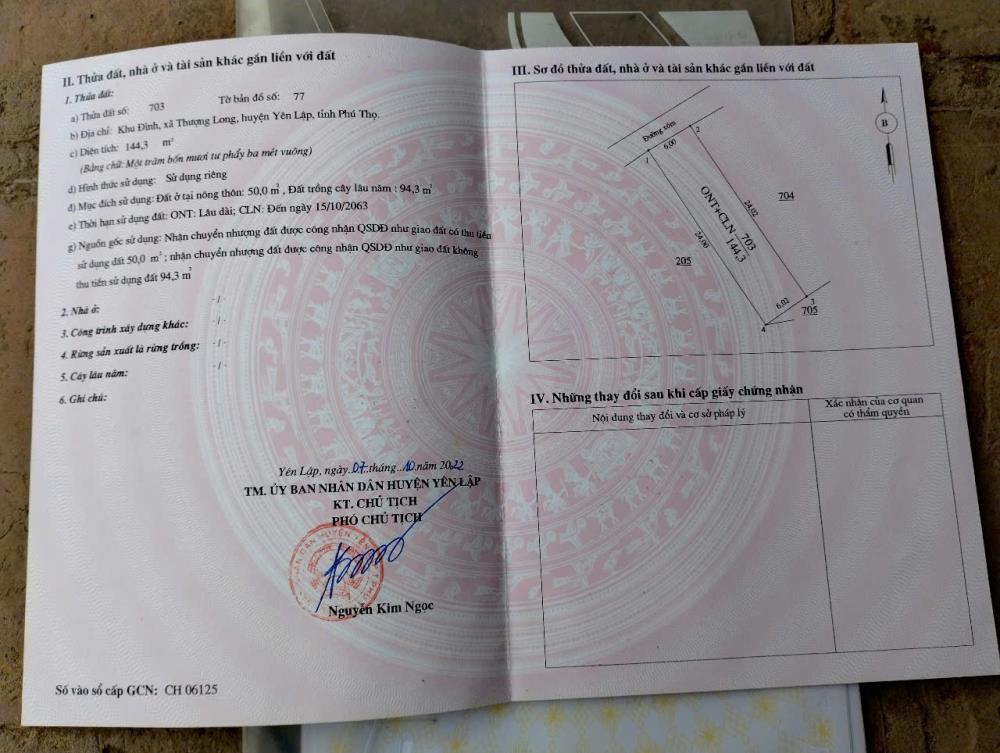 II. Thửa đất, nhà ở và tài sản khác gắn liền với đất
1. Thửa đất:
a) Thửa đất số: 703 Tờ bản đồ số: 77
b) Địa chỉ: Khu Đình, xã Thượng Long, huyện Yên Lập, tỉnh Phú Thọ.
c) Diện tích: 144,3 m²
(Bằng chữ: Một trăm bốn mươi tư phẩy ba mét vuông)
d) Hình thức sử dụng: Sử dụng riêng
đ) Mục đích sử dụng: Đất ở tại nông thôn: 50,0 m², Đất trồng cây lâu năm : 94,3 m²
e) Thời hạn sử dụng đất: ONT: Lâu dài; CLN: Đến ngày 15/10/2063
g) Nguồn gốc sử dụng: Nhận chuyển nhượng đất được công nhận QSDĐ như giao đất có thu tiền
sử dụng đất 50,0 m² ; nhận chuyển nhượng đất được công nhận QSDĐ như giao đất không
thu tiền sử dụng đất 94,3 m²
2. Nhà ở: -/-
3. Công trình xây dựng khác: -/-
4. Rừng sản xuất là rừng trồng: -/-
5. Cây lâu năm: -/-
6. Ghi chú:
Yên Lập, ngày 07 tháng 10 năm 2022
TM. ỦY BAN NHÂN DÂN HUYỆN YÊN LẬP
KT. CHỦ TỊCH
PHÓ CHỦ TỊCH
Nguyễn Kim Ngọc
Số vào sổ cấp GCN: CH 06125
III. Sơ đồ thửa đất, nhà ở và tài sản khác gắn liền với đất
B
Đường xóm
6,00
1
2
24,02
24,00
703
ONT+CLN 144,3
704
205
6,02
3
4
705
IV. Những thay đổi sau khi cấp giấy chứng nhận
Nội dung thay đổi và cơ sở pháp lý
Xác nhận của cơ quan
có thẩm quyền